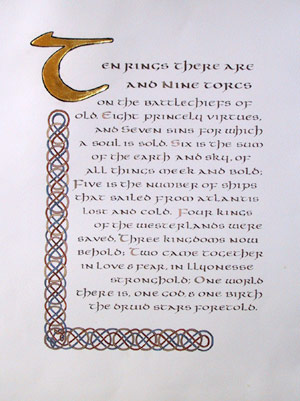 Ten rings there are
and Nine torcs
on the battlechiefs of
old. Eight princely virtues,
and Seven sins for which
a soul is sold. Six is the sum
of the earth and sky, of
all things meek and bold;
Five is the number of ships
that sailed from atlantis
lost and cold. Four kings
of the westerlands were
saved, Three kingdoms now
behold; Two came together
in love & fear, in Llyonesse
stronghold; One world
there is, one god, & one birth
the druid stars foretold.